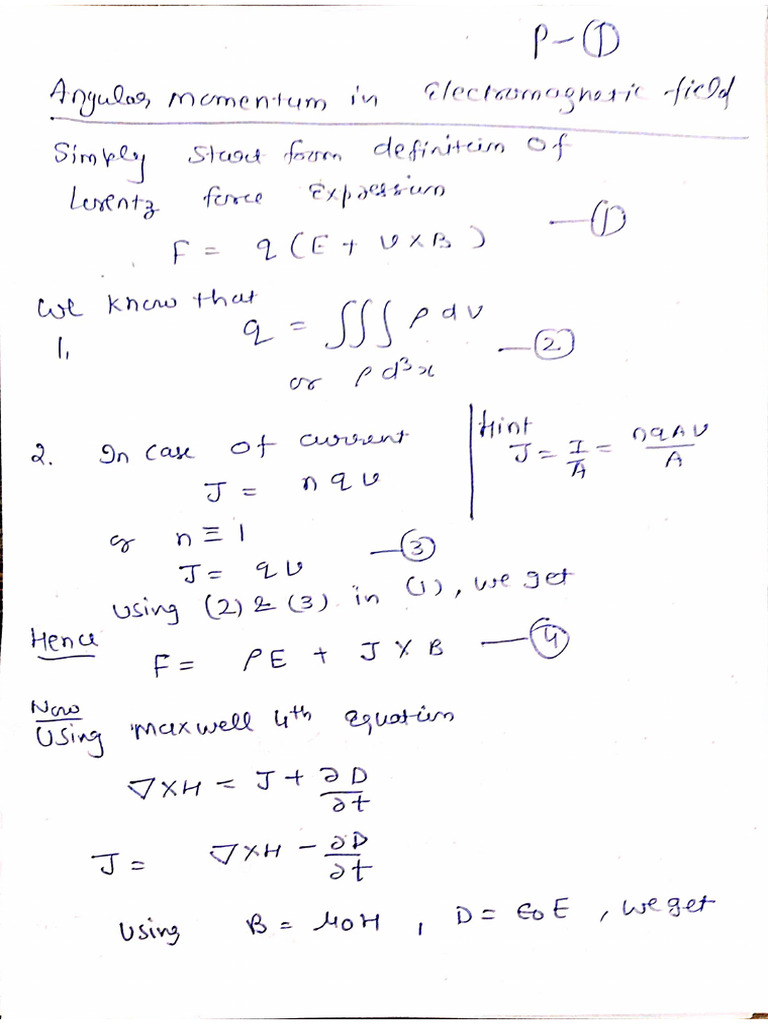 P-①
Angular momentum in Electromagnetic field
Simply start form definition of
Lorentz force Expression
F = q (E + v × B) —①
We know that
1, q = ∭ ρ dv —②
or ρ d³x
2. In case of current
J = n q v
Hint
J = I/A = nqAv/A
or n ≡ 1
J = qv —③
using (2) & (3) in (1), we get
Hence
F = ρE + J × B —④
Now
Using maxwell 4th equation
∇×H = J + ∂D/∂t
J = ∇×H − ∂D/∂t
Using B = μ0H , D = ε0E , we get